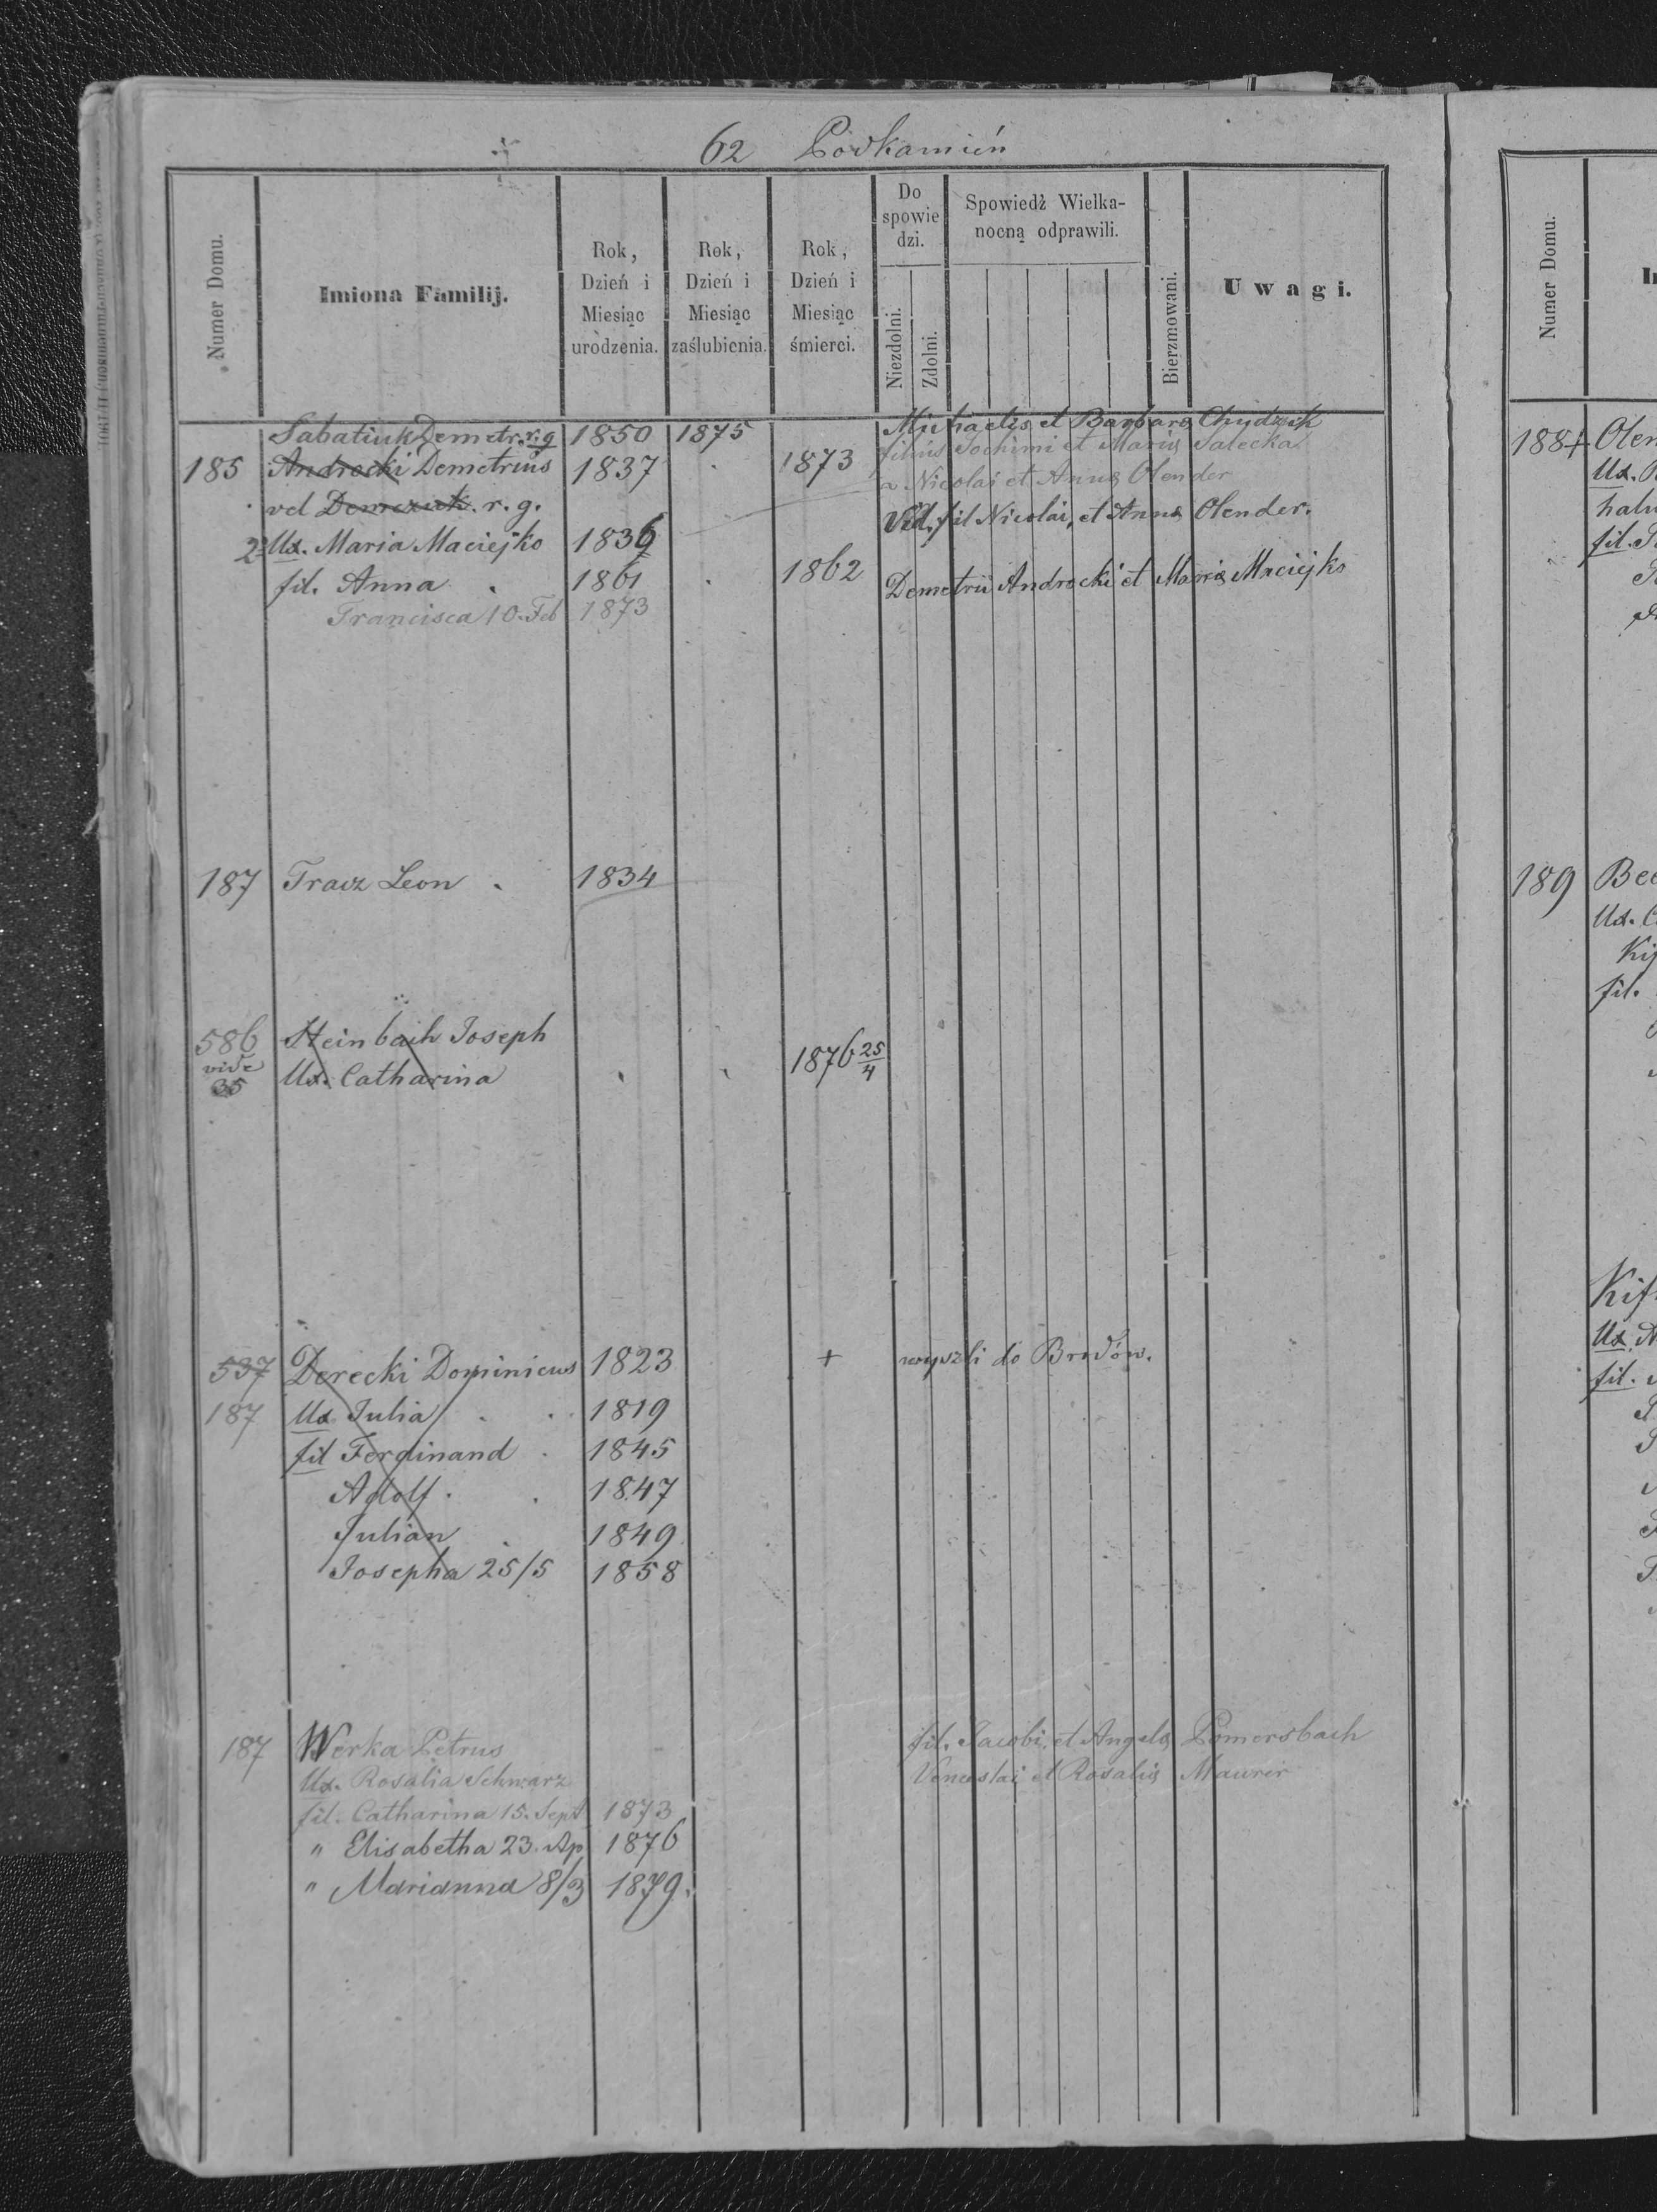 62 Podkamień
Numer Domu.
Imiona Familij.
Rok, Dzień i Miesiąc urodzenia.
Rok, Dzień i Miesiąc zaślubienia.
Rok, Dzień i Miesiąc śmierci.
Do spowie dzi.
Niezdolni.
Zdolni.
Spowiedź Wielka-nocną odprawili.
Bierzmowani.
Uwagi.
Sabatiuk Demetr. r. g 1850 1875 Michaelis et Barbara Chudzik
filius Jochimi et Maria Salecka
185 Androcki Demetrius 1837 1873 Nicolai et Anna Olender
vel Demczuk. r. g. Vid. fil Nicolai, et Anna Olender.
2 Ux. Maria Maciejko 1836
fil. Anna 1861 1862 Demetrii Androcki et Maria Maciejko
Francisca 10. Feb 1873
187 Tracz Leon 1834
586 Steinbach Joseph
vide 35 Ux. Catharina 1876 25/4
537 Derecki Dominicus 1823 + wyszli do Brodów.
187 Ux Julia 1819
fil Ferdinand 1845
Adolf 1847
Julian 1849
Josepha 25/5 1858
187 Werka Petrus fil. Jacobi, et Angela Pomersbach
Ux. Rosalia Schwarz Venceslai et Rosalia Maurer
fil. Catharina 15. Sept 1873
" Elisabetha 23. Ap 1876
" Marianna 8/3 1879.
Numer Domu.
188
Olen
Ux.
fil.
189
Bec
Ux. C
fil.
Kif
Ux. A
fil.